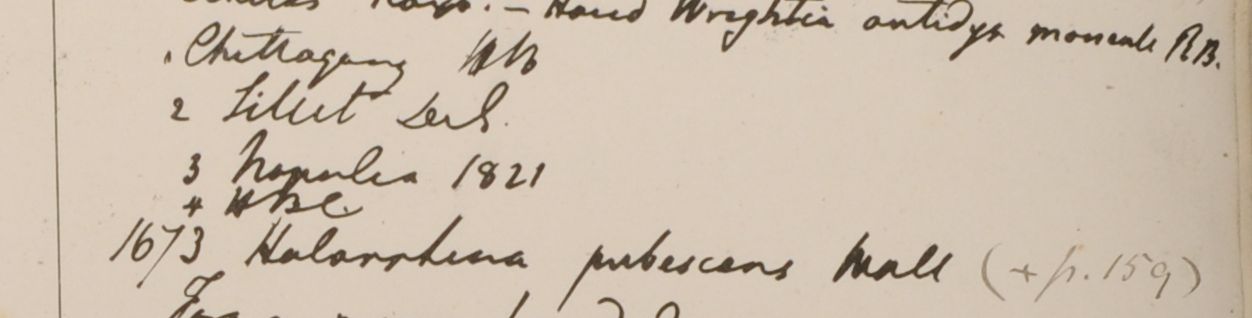 Roxb. – Haud Wrightia antidys mericale RB.
1 Chittagong HB
2 Sillet DeS.
3 Napalia 1821
4 HBC.
1673 Holarrhena pubescens Wall (+ p. 159)